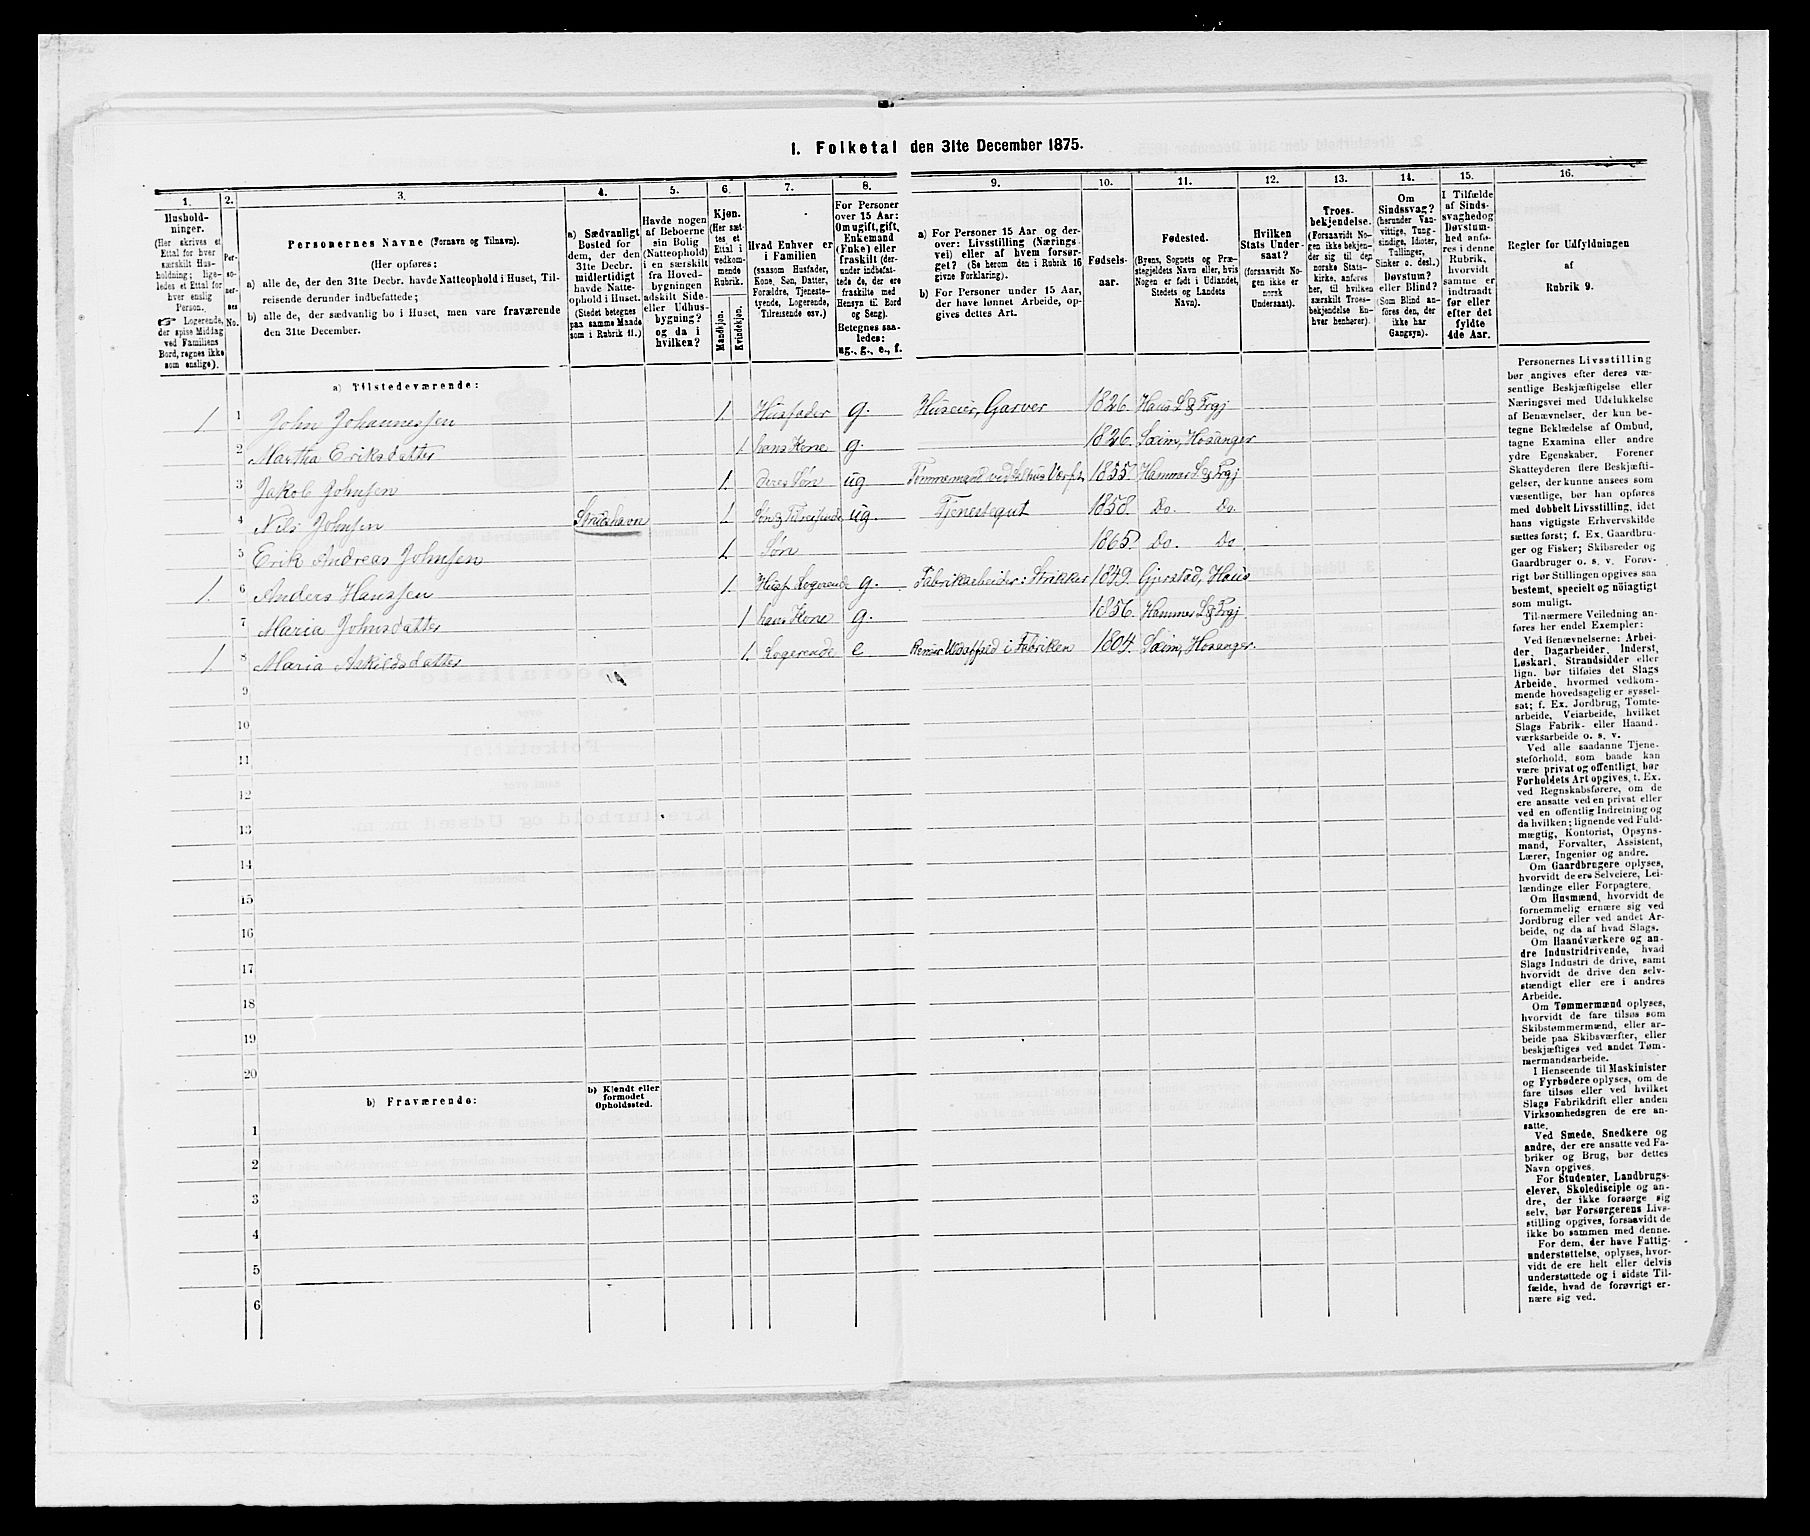 1. Folketal den 31te December 1875.
1.
Hushold-
ninger.
(Her skrives et
Ettal for hver
særskilt Hus-
holdning; lige-
ledes et Ettal for
hver enslig
Person.
☞ Logerende,
der spise Middag
ved Familiens
Bord, regnes ikke
som enslige).
2.
Per-
so-
ner-
nes
No.
3.
Personernes Navne (Fornavn og Tilnavn).
(Her opføres:
a) alle de, der den 31te Decbr. havde Natteophold i Huset, Til-
reisende derunder indbefattede;
b) alle de, der sædvanlig bo i Huset, men vare fraværende
den 31te December.
4.
a) Sædvanligt
Bosted for
dem, der den
31te Decbr.
midlertidigt
havde Natte-
ophold i Huset.
(Stedet betegnes
paa samme Maade
som i Rubrik 11.)
5.
Havde nogen
af Beboerne
sin Bolig
(Natteophold)
i en særskilt
fra Hoved-
bygningen
adskilt Side-
eller Udhus-
bygning?
og da i
hvilken?
6.
Kjøn.
(Her sæt-
tes et
Ettal i
vedkom-
mende
Rubrik.
Mandkjøn.
Kvindekjøn.
7.
Hvad Enhver er
i Familien
(saasom Husfader,
Kone, Søn, Datter,
Forældre, Tjeneste-
tyende, Logerende,
Tilreisende osv.)
8.
For Personer
over 15 Aar:
Om ugift, gift,
Enkemand
(Enke) eller
fraskilt (der-
under indbefat-
tede de, der ere
fraskilte med
Hensyn til Bord
og Seng).
Betegnes saa-
ledes:
ug., g., e., f.
9.
a) For Personer 15 Aar og der-
over: Livsstilling (Nærings-
vei) eller af hvem forsør-
get? (Se herom den i Rubrik 16
givne Forklaring).
b) For Personer under 15 Aar,
der have lønnet Arbeide, op-
gives dettes Art.
10.
Fødsels-
aar.
11.
Fødested.
(Byens, Sognets og Præ-
stegjeldets Navn eller, hvis
Nogen er født i Udlandet,
Stedets og Landets
Navn).
12.
Hvilken
Stats Under-
saat?
(forsaavidt No-
gen ikke er
norsk
Undersaat).
13.
Troes-
bekjendelse.
(Forsaavidt No-
gen ikke bekjen-
der sig til den
norske Stats-
kirke, anføres
her, til hvilken
særskilt Troes-
bekjendelse En-
hver henhører).
14.
Om
Sindssvag?
(herunder Van-
vittige, Tung-
sindige, Idioter,
Tullinger,
Sinker o. desl.)
Døvstum?
eller Blind?
(Som Blind an-
føres den, der
ikke har
Gangsyn).
15.
I Tilfælde
af Sinds-
svaghed og
Døvstum-
hed anfø-
res i denne
Rubrik,
hvorvidt
samme er
indtraadt
før eller
efter det
fyldte
4de Aar.
16.
Regler for Udfyldningen
af
Rubrik 9.
a) Tilstedeværende:
1 1 John Johannessen 1. Husfader g. Huseier, Garver 1826. Haus L & Frgj
2 Martha Eriksdatter 1 hans Kone g. 1826. Sæim, Hosanger
3 Jakob Johnsen 1. Deres Søn ug 1855. Hammer L & Frgj
4 Nils Johnsen 1. ug. Tjenestegut 1858. Do. Do.
5 Erik Andreas Johnsen 1. Søn 1865. Do. Do.
1. 6 Anders Hanssen 1. Husf. Logerende g. Fabrikarbeider: Strikker 1849. Gjerstad, Haus
7 Maria Johnsdatter 1 hans Kone g. 1856. Hammer L & Frgj
1 8 Maria Askildsdatter 1. Logerende e i Fabriken 1804. Sæim, Hosanger.
9
10
11
12
13
14
15
16
17
18
19
20
b) Fraværende:
b) Kjendt eller
formodet
Opholdssted.
1
2
3
4
5
6
Personernes Livsstilling
bør angives efter deres væ-
sentlige Beskjæftigelse eller
Næringsvei med Udelukkelse
af Benævnelser, der kun be-
tegne Beklædelse af Ombud,
tagne Examina eller andre
ydre Egenskaber. Forener
Skatteyderen flere Beskjæfti-
gelser, der kunne ansees som
væsentlige, bør han opføres
med dobbelt Livsstilling, idet
hans vigtigste Erhvervskilde
sættes først; f. Ex. Gaardbru-
ger og Fisker; Skibsreder og
Gaardbruger o. s. v. Forøv-
rigt bør Stillingen opgives saa
bestemt, specielt og nöiagtigt
som muligt.
Til nærmere Veiledning an-
føres her endel Exempler:
Ved Benævnelserne: Arbei-
der, Dagarbeider, Inderst,
Løskarl, Strandsidder eller
lign. bør tilføies det Slags
Arbeide, hvormed vedkom-
mende hovedsagelig er syssel-
sat; f. Ex. Jordbrug, Tomte-
arbeide, Veiarbeide, hvilket
Slags Fabrik- eller Haand-
værksarbeide o. s. v.
Ved alle saadanne Tjene-
steforhold, som baade kan
være privat og offentligt, bør
Forholdets Art opgives, t. Ex.
ved Regnskabsførere, om de
ere ansatte ved en privat eller
ved en offentlig Indretning og
da hvilken; lignende ved Fuld-
mægtig, Kontorist, Opsyns-
mand, Forvalter, Assistent,
Lærer, Ingeniør og andre.
Om Gaardbrugere oplyses,
hvorvidt de ere Selveiere, Lei-
lændinge eller Forpagtere.
Om Husmænd, hvorvidt de
fornemmelig ernære sig ved
Jordbrug eller ved andet Ar-
beide, og da af hvad Slags.
Om Haandværkere og an-
dre Industridrivende, hvad
Slags Industri de drive, samt
hvorvidt de drive den selv-
stændigt eller ere i andres
Arbeide.
Om Tømmermænd oplyses,
hvorvidt de fare tilsøs som
Skibstømmermænd, eller ar-
beide paa Skibsværfter, eller
beskjæftiges ved andet Tøm-
mermandsarbeide.
I Henseende til Maskinister
og Fyrbødere oplyses, om de
fare tilsøs eller ved hvilket
Slags Fabrikdrift eller anden
Virksomhedsgren de ere an-
satte.
Ved Smede, Snedkere og
andre, der ere ansatte ved Fa-
briker og Brug, bør dettes
Navn opgives.
For Studenter, Landbrugs-
elever, Skoledisciple og an-
dre, der ikke forsørge sig
selv, bør Forsørgerens Livs-
stilling opgives, forsaavidt de
ikke bo sammen med denne.
For dem, der have Fattig-
understøttelse, oplyses, hvor-
vidt de ere helt eller delvis
understøttede og i sidste Til-
fælde, hvad de forøvrigt er-
nære sig ved.